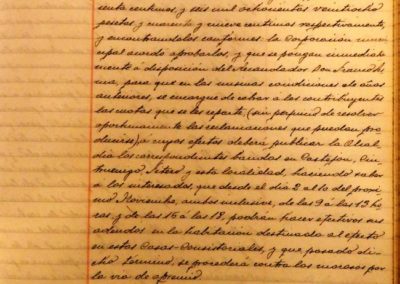 cuenta centimos, y seis mil ochocientas veintiocho
pesetas y cuarenta y nueve centimos respectivamente,
y encontrandolos conformes la Corporación muni-
cipal acordó aprobarlos, y que se pongan inmediata-
mente á disposición del Recaudador Don
para que en las mismas condiciones de años
anteriores, se encargue de cobrar á los contribuyentes
las cuotas que se les reparte, (sin perjuicio de resolver
oportunamente las reclamaciones que puedan pro-
ducirse) á cuyos efectos deberá publicar la Alcal-
día los correspondientes bandos en Castejon,
y esta localidad, haciendo saber
á los interesados, que desde el dia 2 al 10 del proxi-
mo Noviembre, ambos inclusive, de las 9 á las 12 ho-
ras y de las 15 á las 18, podrán hacer efectivos sus
adeudos en la habitación destinada al efecto
en estas Casas-Consistoriales, y que pasado di-
cho término, se procederá contra los morosos por
la via de apremio.